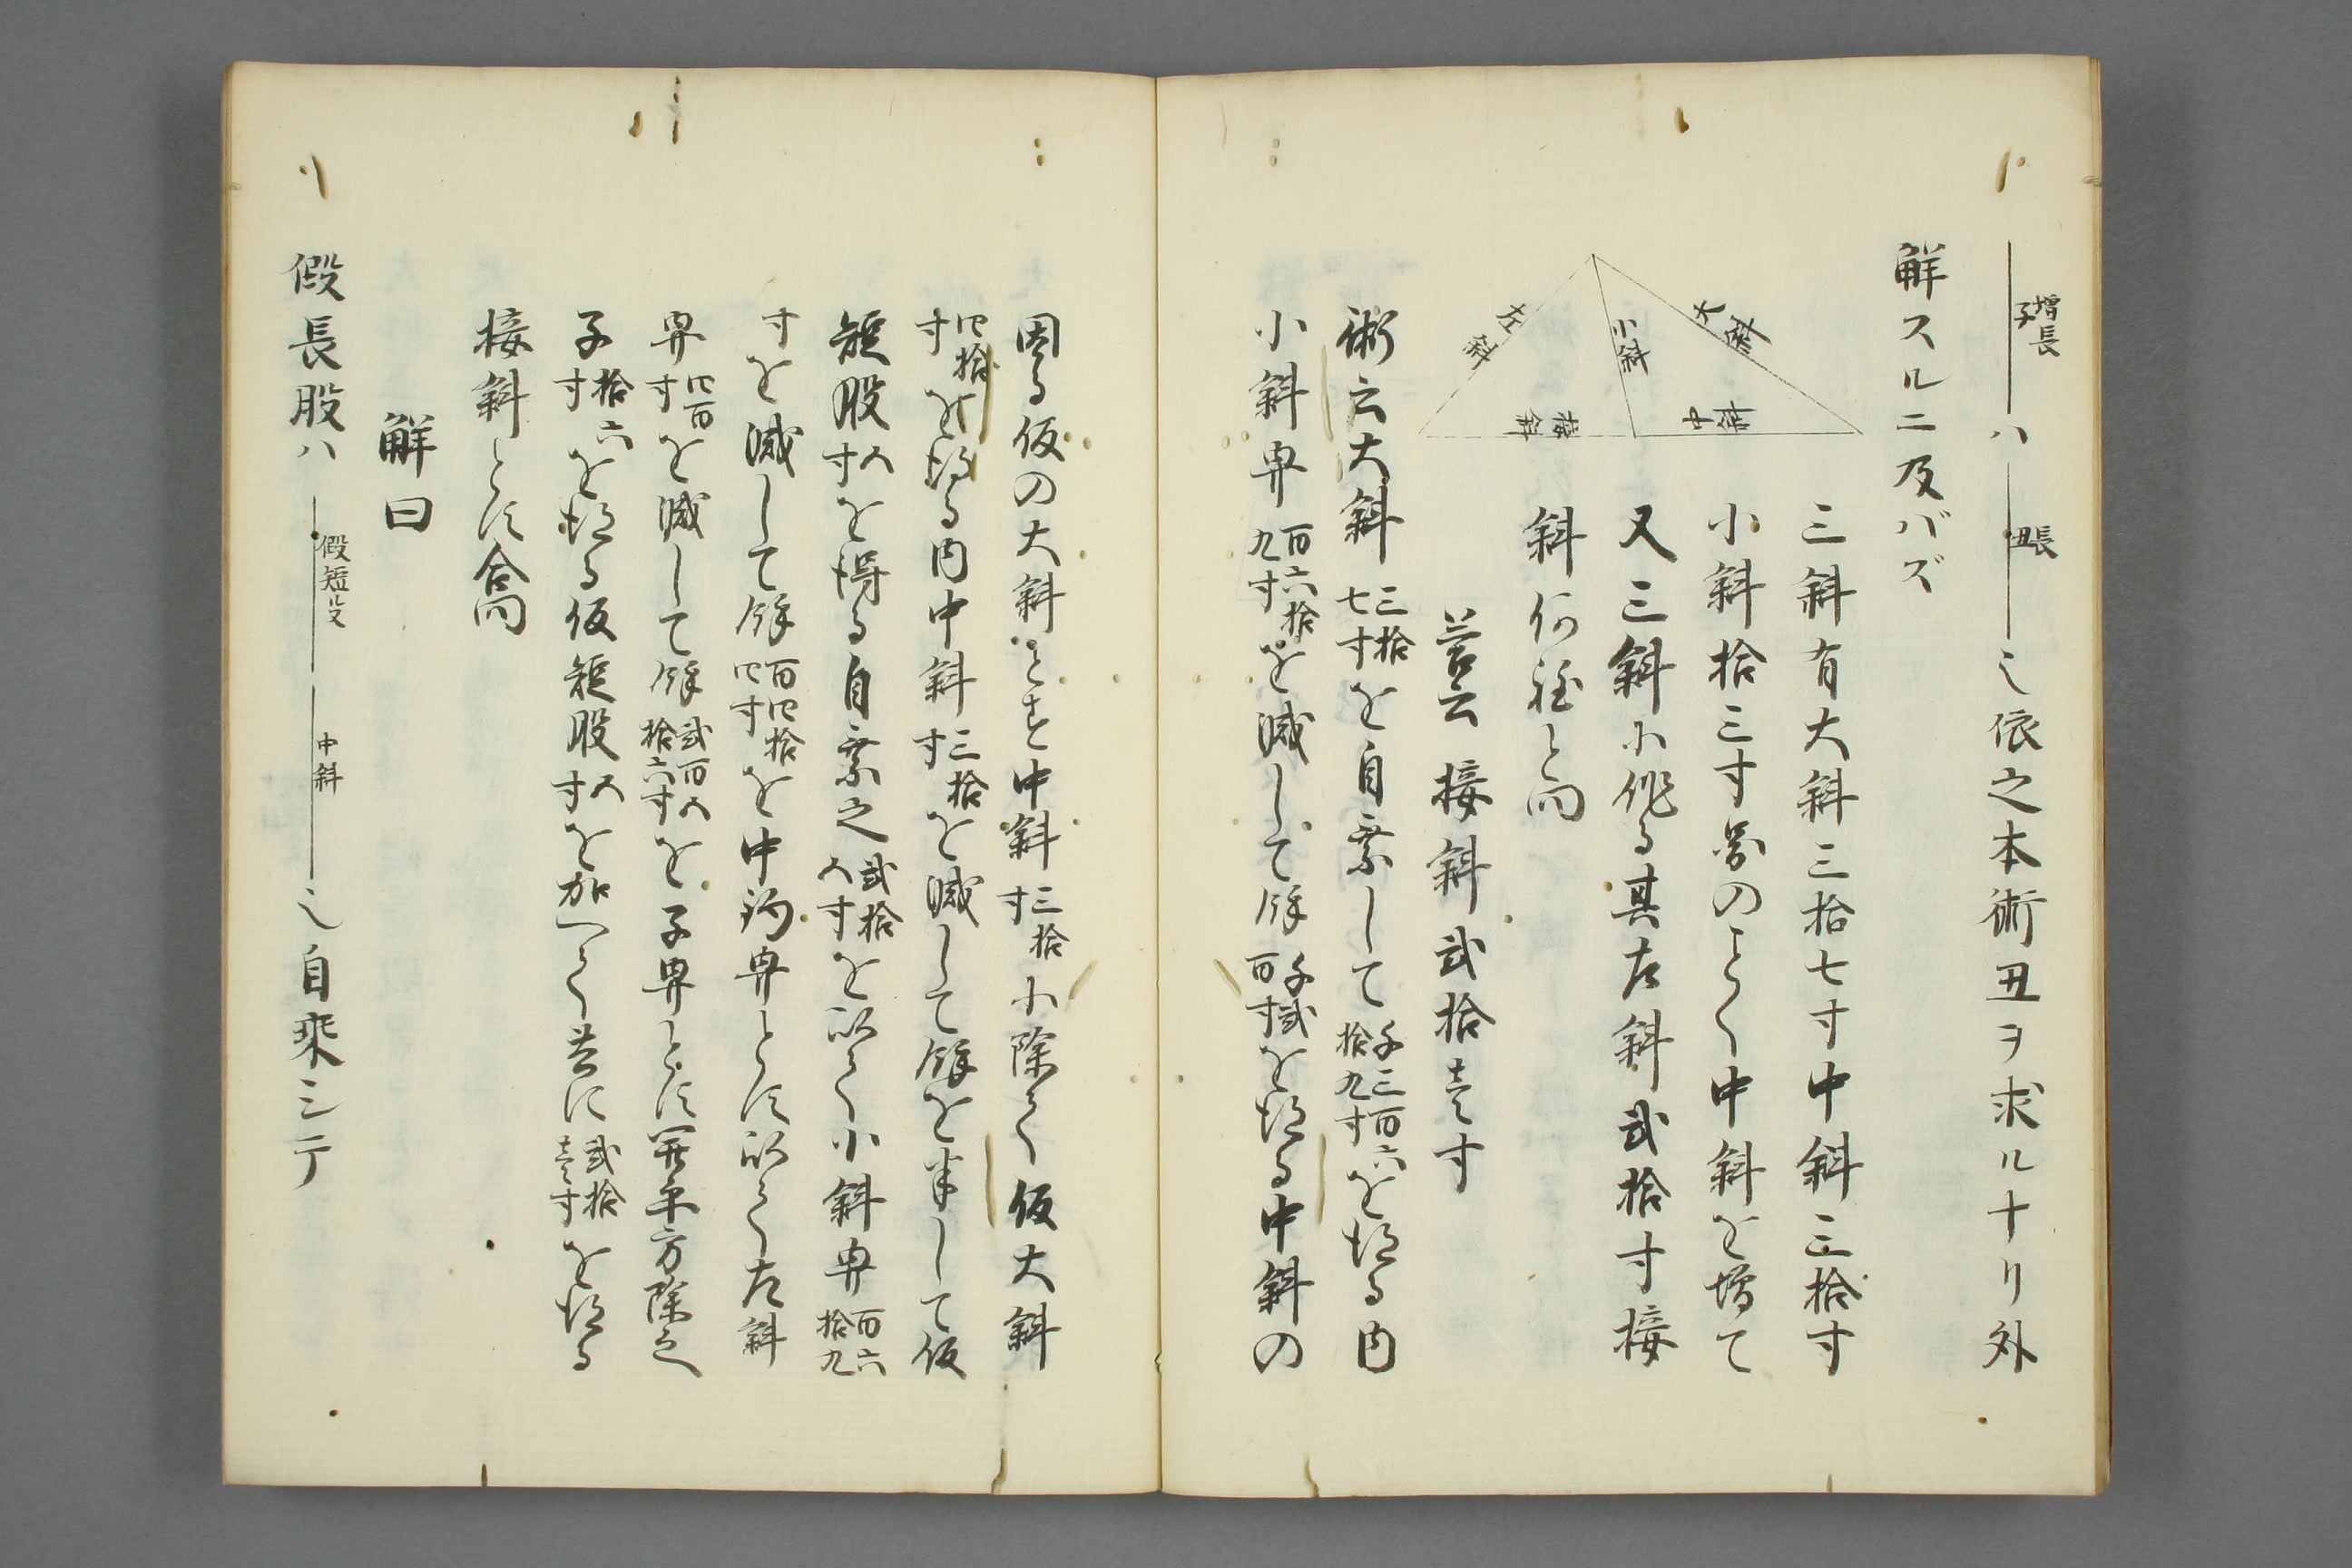 増長
子
ハ
長
丑
也依之本術丑ヲ求ルナリ外
解スルニ及バズ
大斜
小斜
左斜
中斜
接斜
三斜有大斜三拾七寸中斜三拾寸
小斜拾三寸図のことく中斜を増て
又三斜に作る其左斜弐拾寸接
斜何程と問
答云接斜弐拾壱寸
術云大斜三拾七寸を自乗して千三百六拾九寸を得る内
小斜巾百六拾九寸を減して余千弐百寸を得る中斜の
因る仮の大斜とす中斜三拾寸に除て仮大斜
四拾寸を得る内中斜三拾寸を減して余を半して仮
短股五寸を得る自乗之弐拾五寸を以て小斜巾百六拾九
寸を減して余百四拾四寸を中鈎巾とに以て左斜
巾四百寸を減して余弐百五拾六寸を子巾とに開平方除之
子拾六寸を得る仮短股五寸を加へて共に弐拾壱寸を得る
接斜とに合問
解曰
假長股ハ
假短股
中斜
也自乗シテ